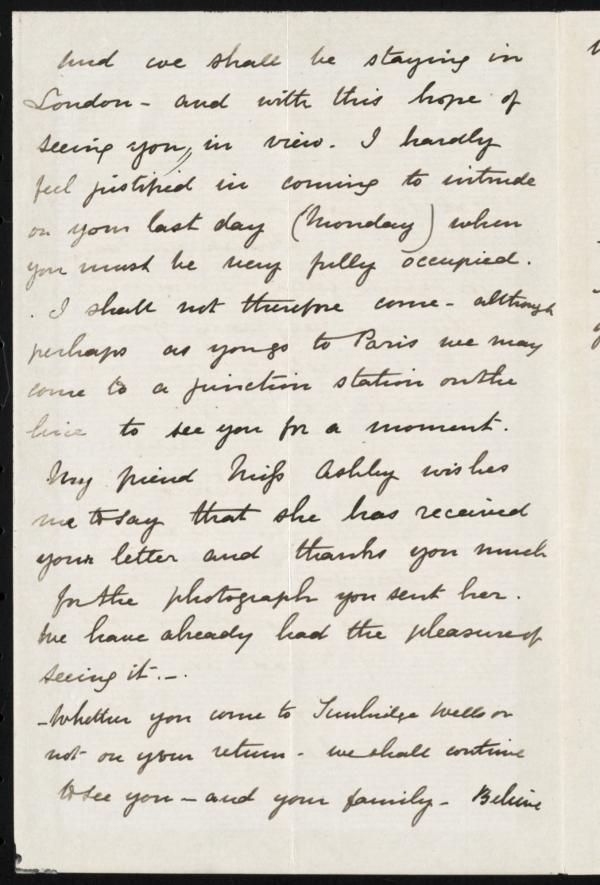 and we shall be staying in
London - and with this hope of
seeing you, in view. I hardly
feel justified in coming to intrude
on your last day (Monday) when
you must be very fully occupied.
. I shall not therefore come - although
perhaps as you go to Paris we may
come to a junction station on the
line to see you for a moment.
My friend Miss Ashley wishes
me to say that she has received
your letter and thanks you much
for the photograph you sent her.
We have already had the pleasure of
seeing it. -.
- Whether you come to Tunbridge Wells or
not on your return - we shall continue
to see you - and your family - Believe